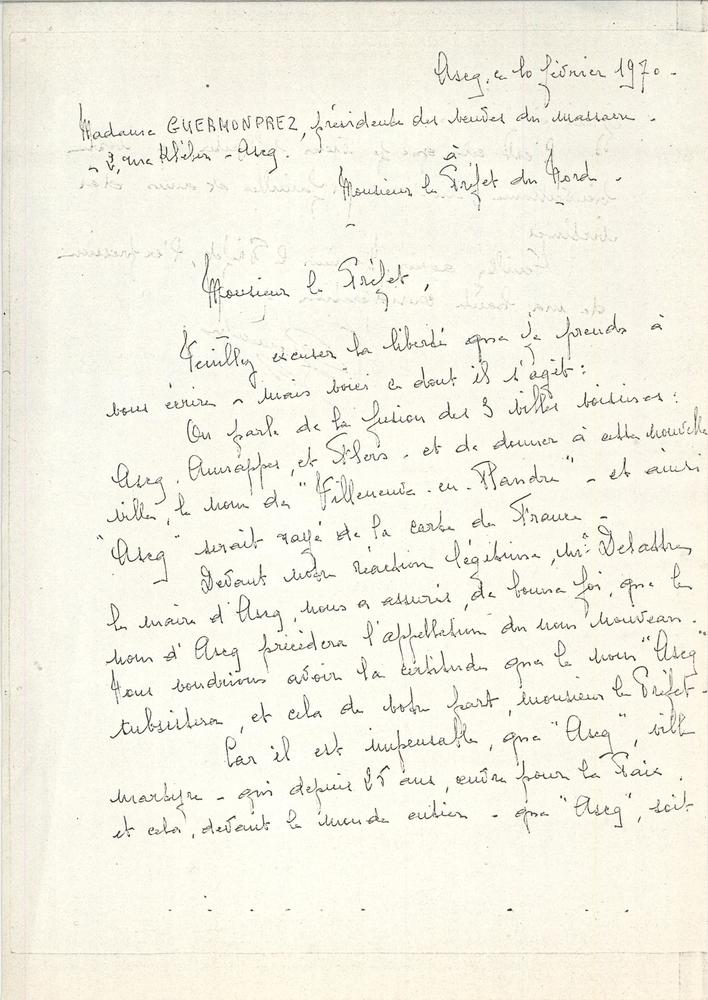 Ascq, ce 10 février 1970 -
Madame GUERMONPREZ, présidente des veuves du massacre -
- 2, rue Kléber - Ascq.
à
Monsieur le Préfet du Nord -
Monsieur le Préfet,
Veuillez excuser la liberté que je prends à
vous écrire - mais voici ce dont il s'agit :
On parle de la fusion des 3 villes voisines :
Ascq. Annappes, et Flers - et de donner à cette nouvelle
ville, le nom de "Villeneuve-en-Flandre" - et ainsi
"Ascq" serait rayé de la carte de France -
Devant notre réaction légitime, Mr Delattre
le maire d'Ascq, nous a assurés, de bonne foi, que le
nom d'Ascq précèdera l'appellation du nom nouveau.
Nous voudrions avoir la certitude que le nom "Ascq"
subsistera, et cela de votre part, monsieur le Préfet -
Car il est impensable, que "Ascq", ville
martyre - qui depuis 25 ans, œuvre pour la Paix,
et cela, devant le monde entier - que "Ascq", soit